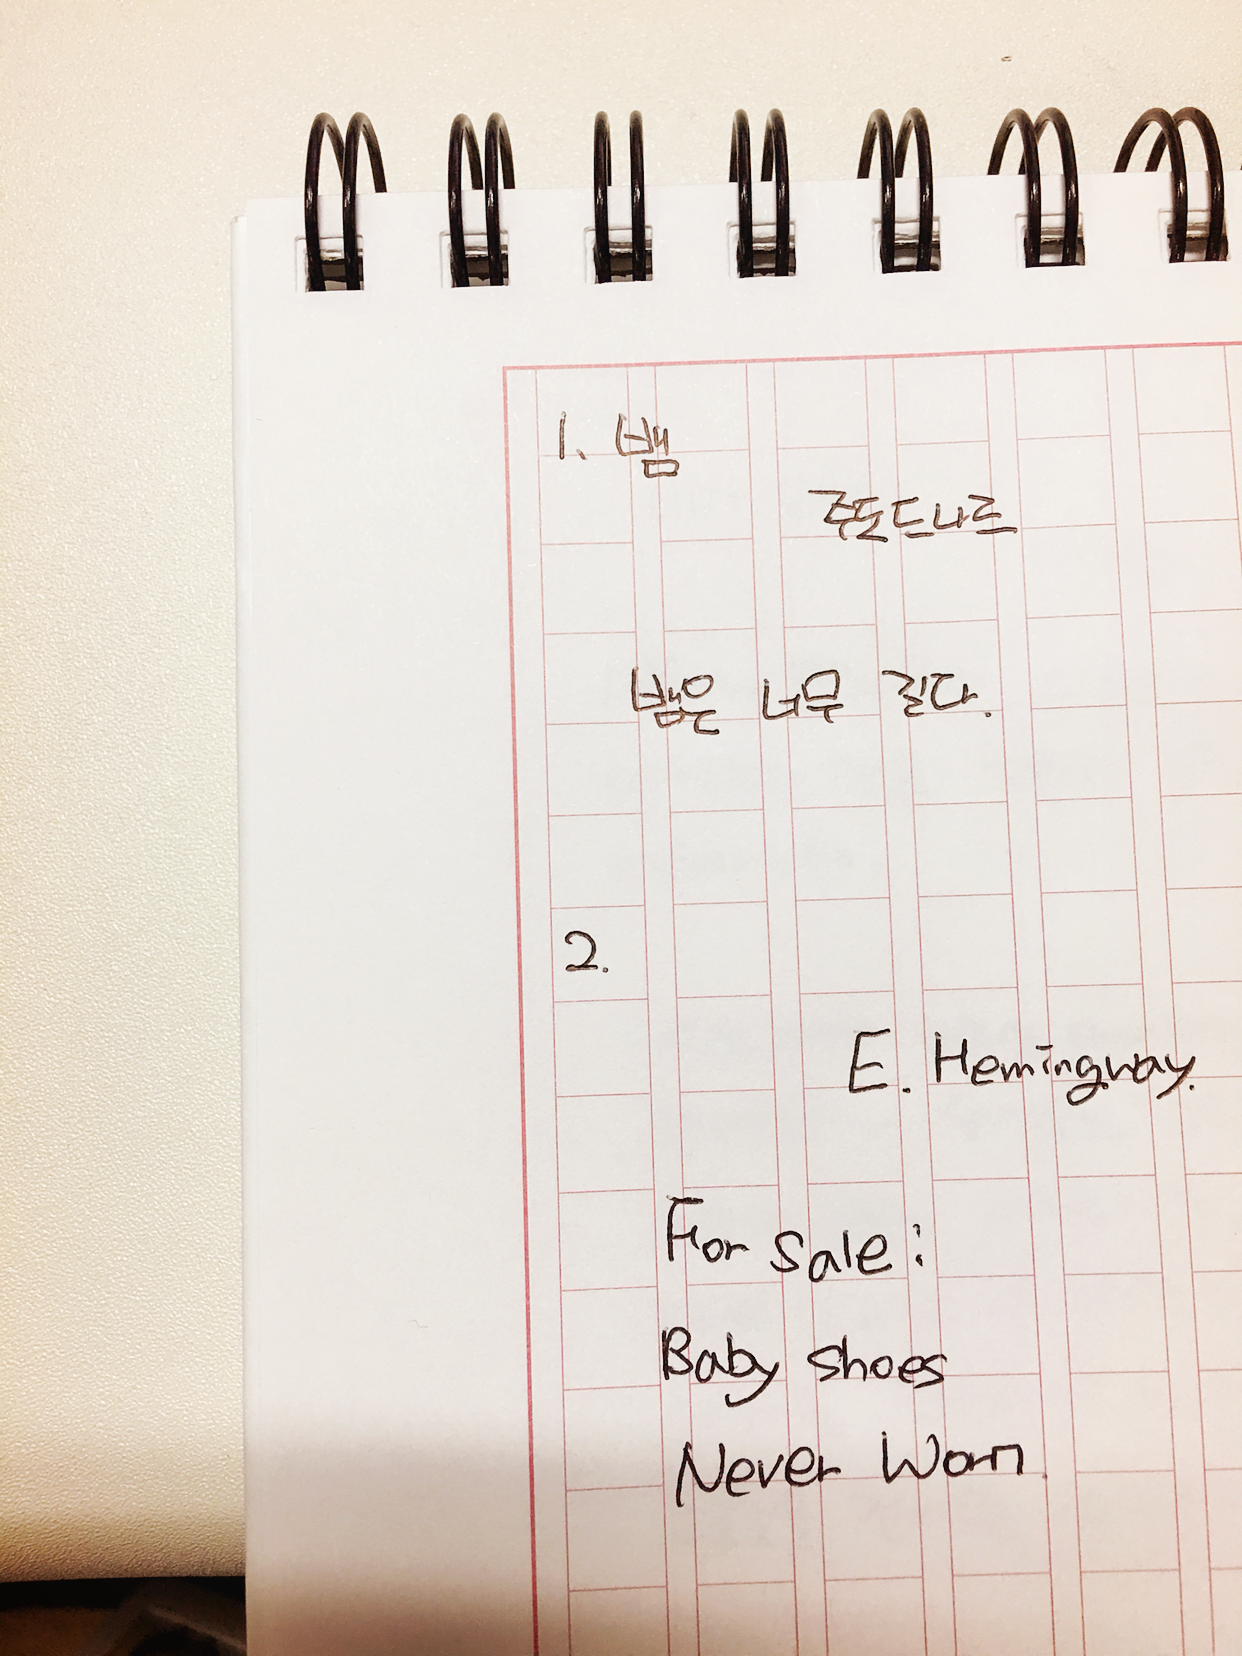 1. 뱀
주도드나르
뱀은 너무 길다.
2.
E. Hemingway.
For sale:
Baby shoes
Never Worn.